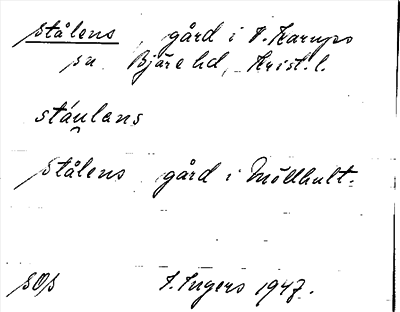 Stålens, gård i V. Karups
sn Bjäre hd, Krist. l.
stáu̯lans
Stålens gård i Möllhult.
sOs I. Ingers 1947.